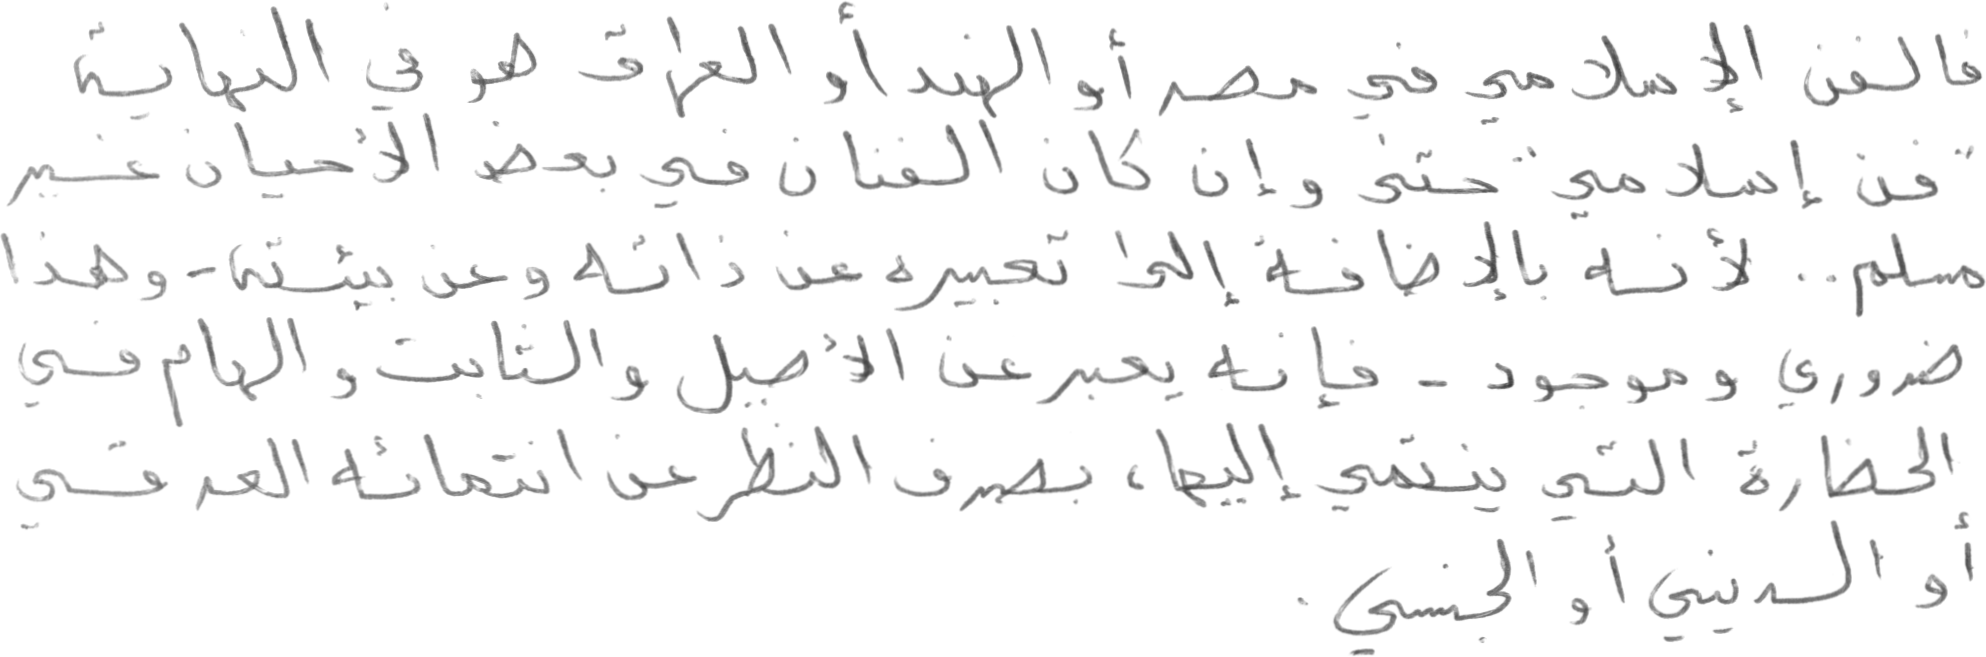 فالفن الإسلامي في مصر أو الهند أو العراق هو في النهاية
"فن إسلامي" حتى وإن كان الفنان في بعض الأحيان غير
مسلم.. لأنه بالإضافة إلى تعبيره عن ذاته وعن بيئته - وهذا
ضروري وموجود - فإنه يعبر عن الأصيل والثابت والهام في
الحضارة التي ينتمي إليها، بصرف النظر عن انتمائه العرقي
أو الديني أو الجنسي.